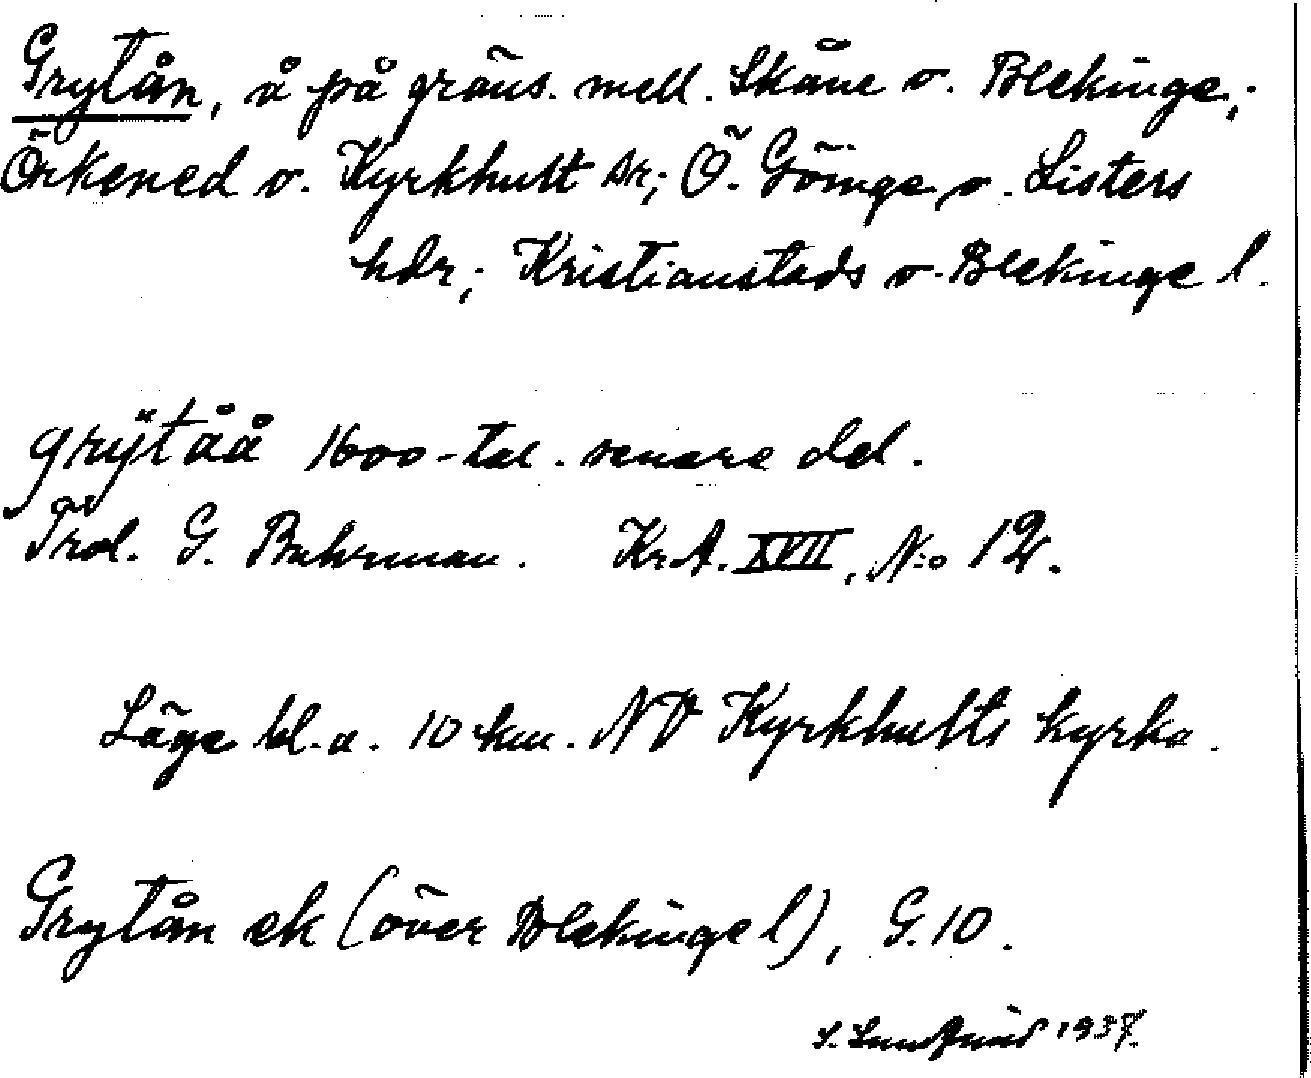 Grytån, å på gräns. mell. Skåne o. Blekinge;
Örkened o. Kyrkhult sr; Ö. Göinge o. Listers
hdr; Kristianstads o. Blekinge l.
grÿtåå 1600-tal. senare del.
av
Trol. G. Buhrman. Kr.A. XVII, N:o 12.
Läge bl.a. 10 km. NV Kyrkhults kyrka.
Grytån ek (över Blekinge l), G. 10.
S. 1937.